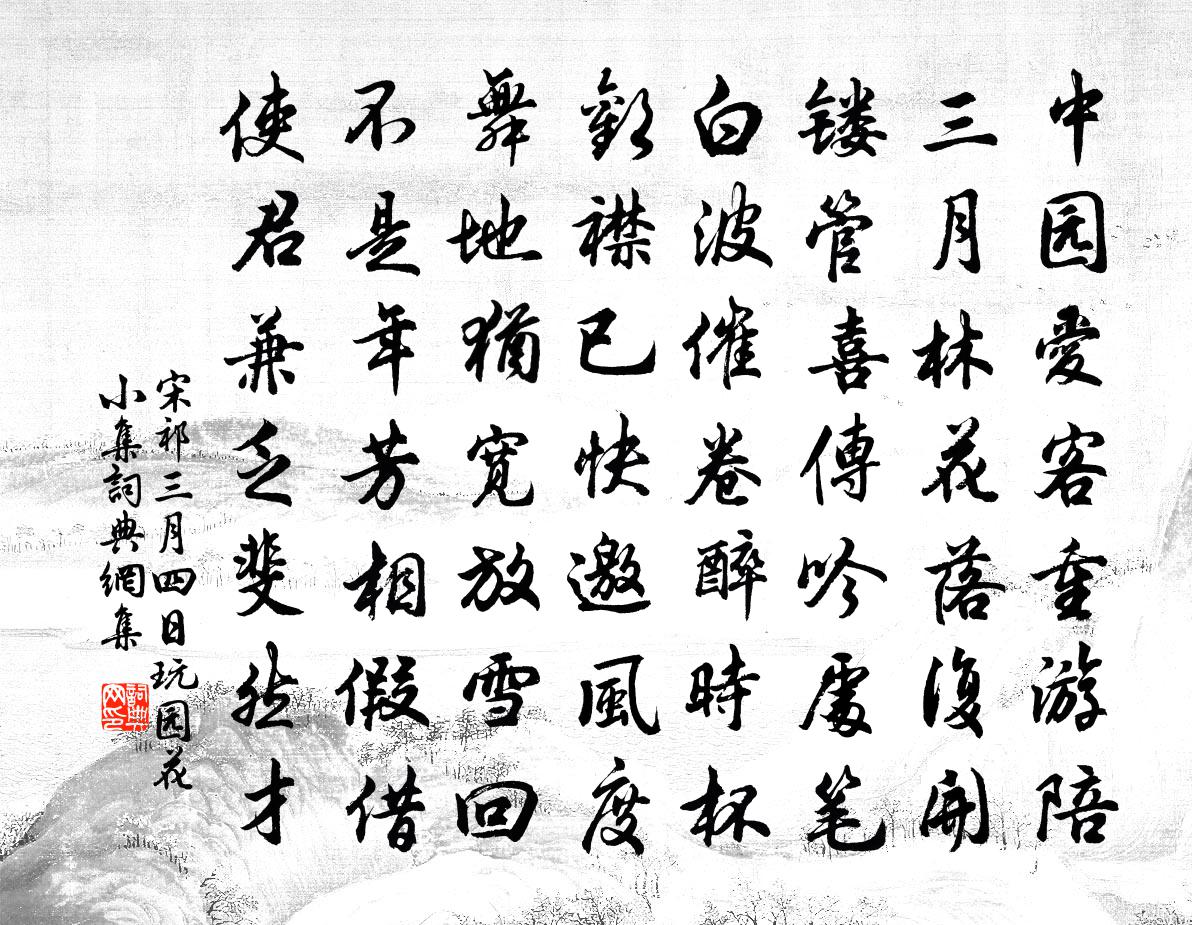 中园愛客重游陪
三月林花落復開
镂管喜傳吟處笔
白波催卷醉時杯
歡襟已快邀風度
舞地猶寬放雪回
不是年芳相假借
使君兼乏斐然才
宋祁三月四日玩园花
小集詞典網集
詞典网印